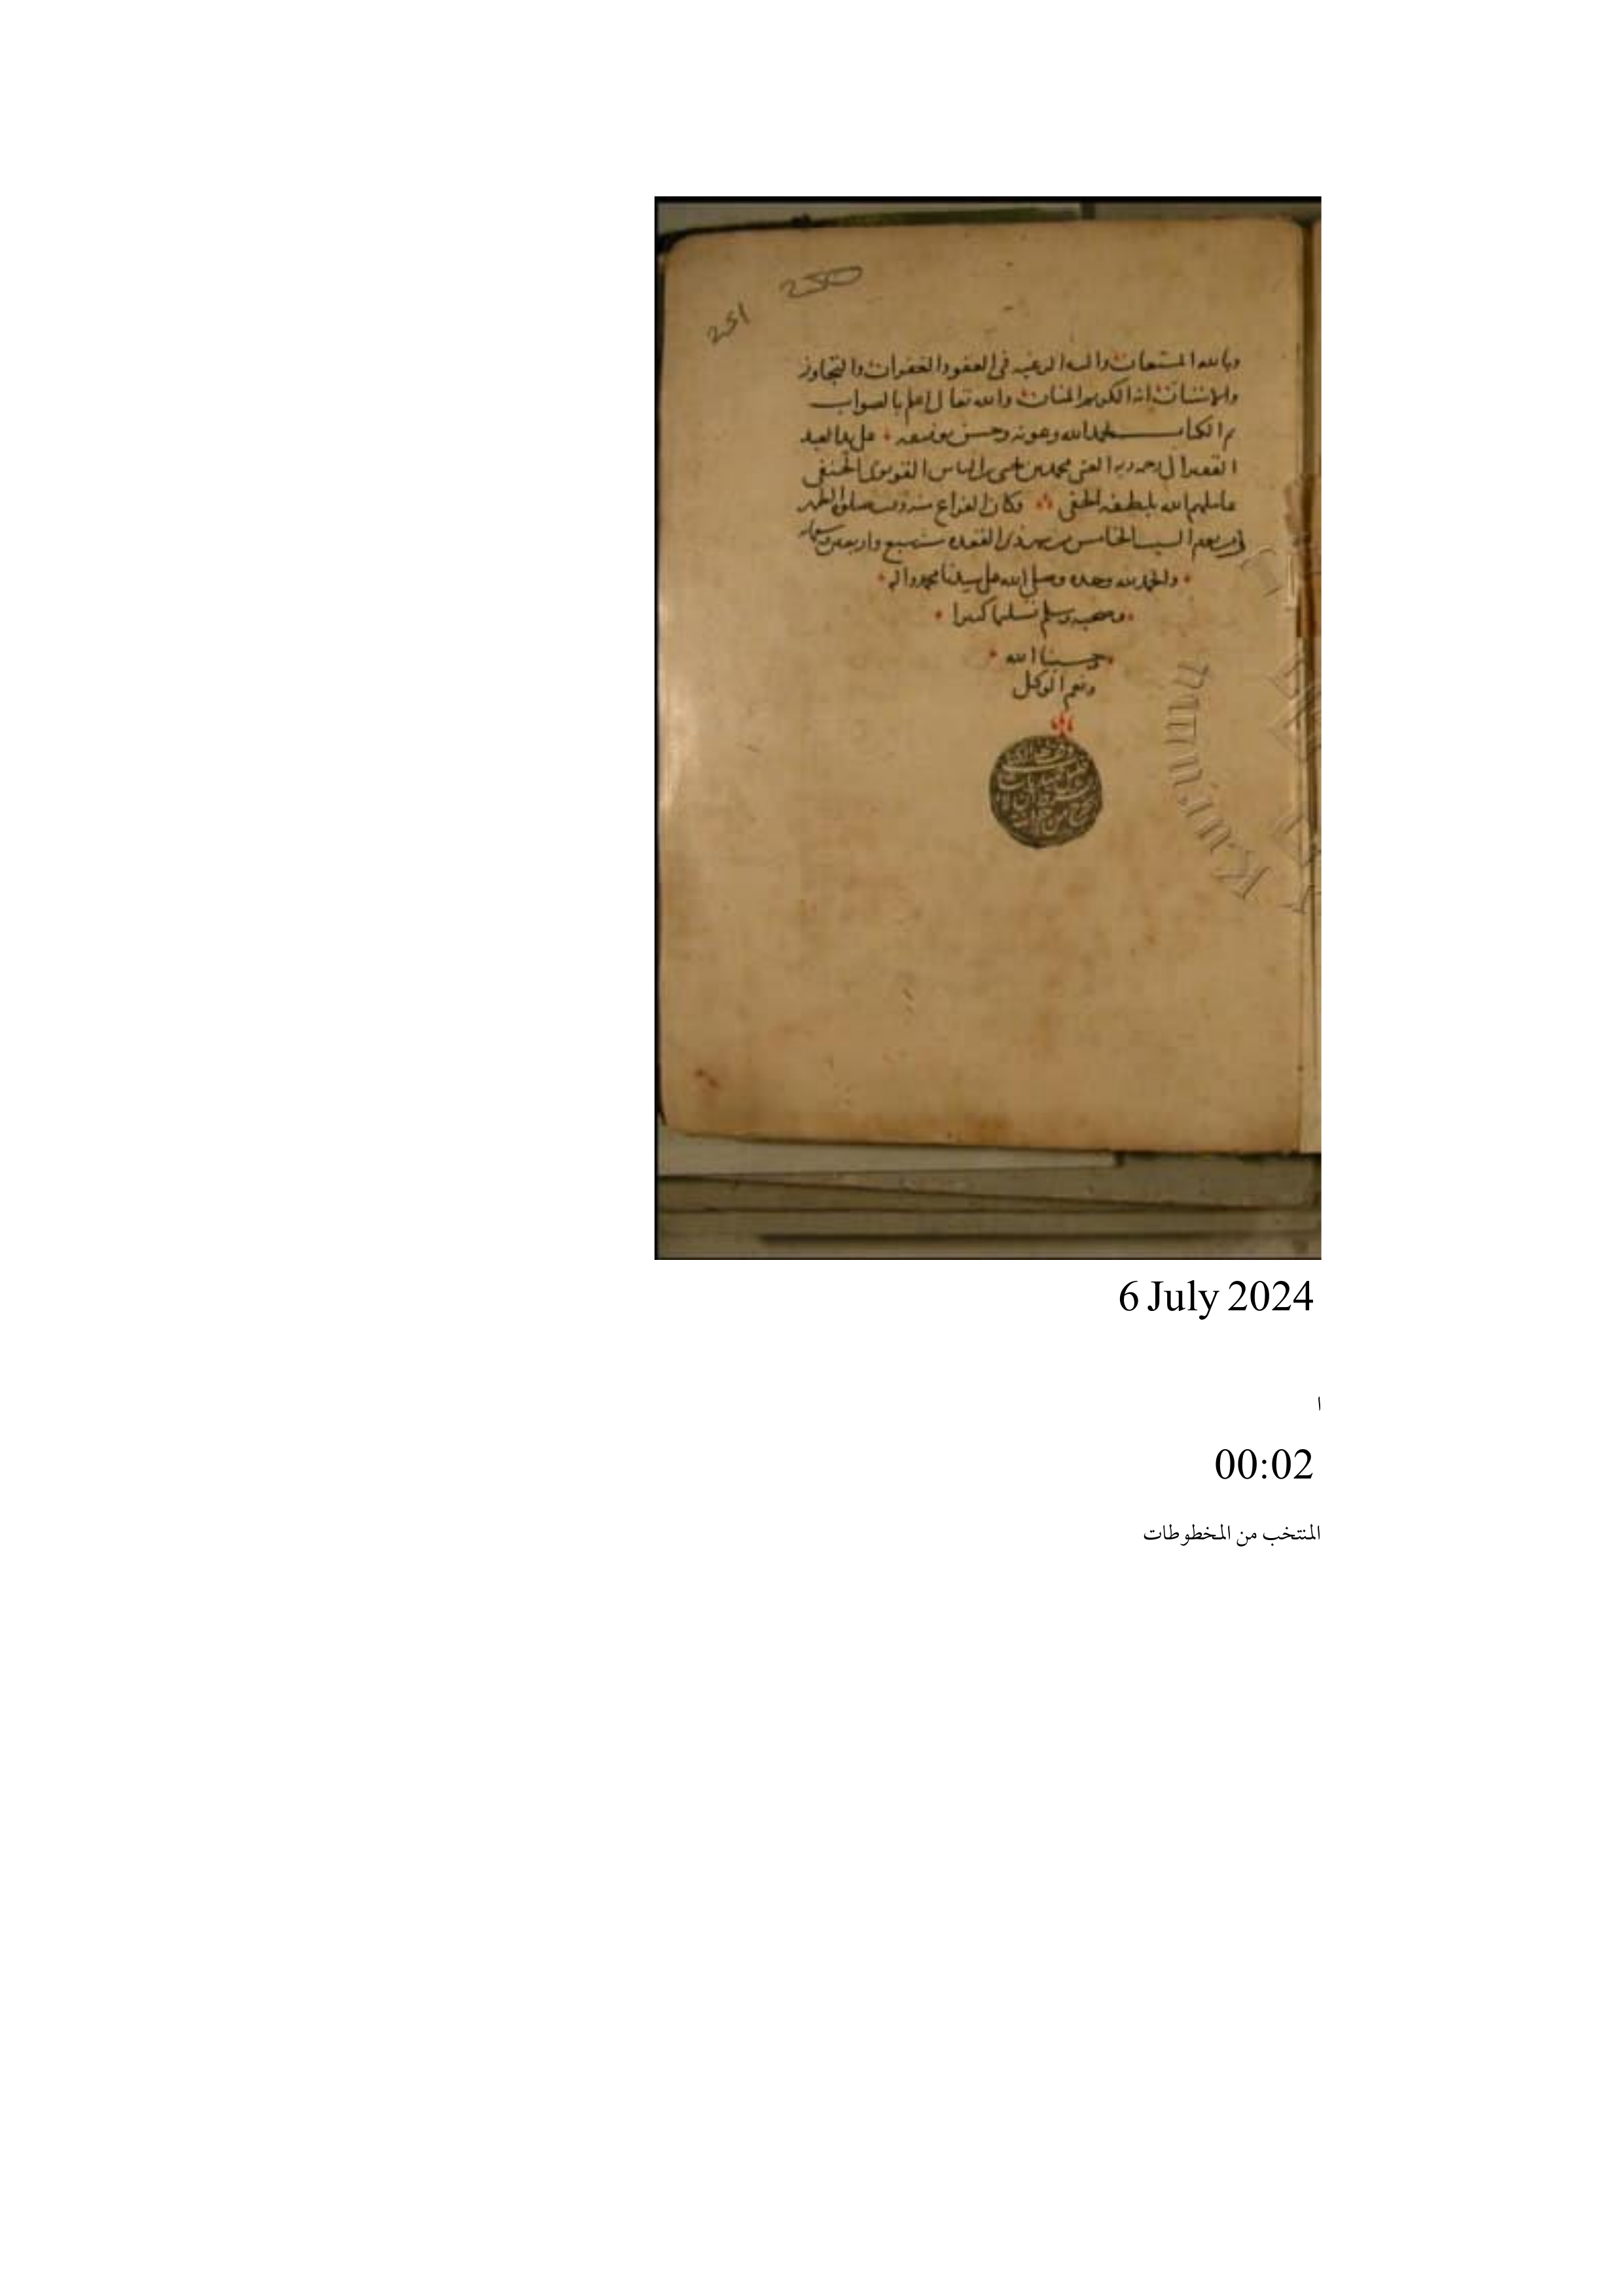 250
251
وبالله المستعان واليه الرغبه في العفو والغفران والتجاوز
والامتنان انه الكريم المنان والله تعالى اعلم بالصواب
تم الكتاب بحمد الله وعونه وحسن توفيقه على يد العبد
الفقير الى رحمة ربه الغني محمد بن الياس القونوى الحنفي
عاملهم الله بلطفه الخفي وكان الفراغ منه وقت صلوة الظهر
السبت الخامس من شهر ذي القعده سنة سبع واربعين
والحمد لله وحده وصلى الله على سيدنا محمد واله
وصحبه وسلم تسليما كثيرا
حسبنا الله
ونعم الوكيل
6 July 2024
ا
00:02
المنتخب من المخطوطات